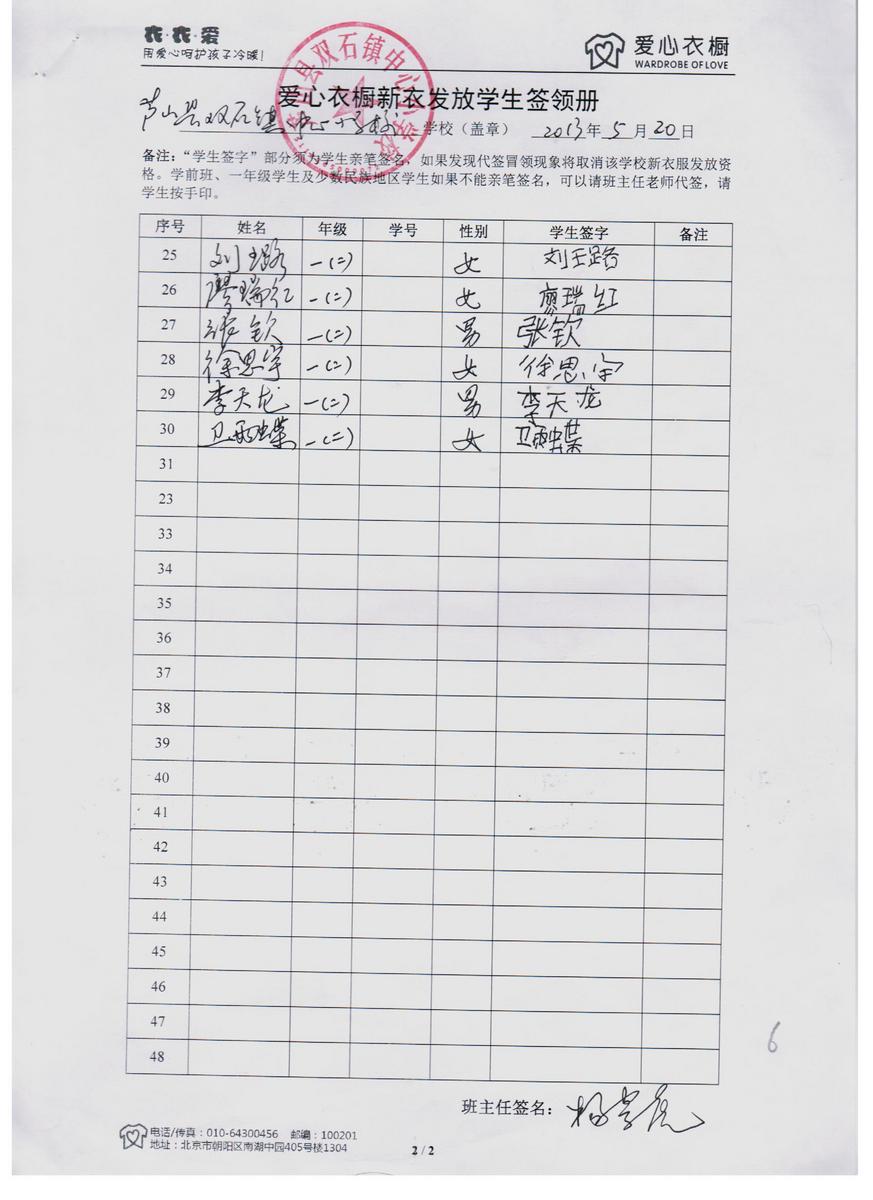 衣·衣·爱
用爱心呵护孩子冷暖!
爱心衣橱
WARDROBE OF LOVE
县双石镇中心小学校
爱心衣橱新衣发放学生签领册
芦山县双石镇中心小学校 学校（盖章） 2013年5月20日
备注：“学生签字”部分须为学生亲笔签名，如果发现代签冒领现象将取消该学校新衣服发放资
格。学前班、一年级学生及少数民族地区学生如果不能亲笔签名，可以请班主任老师代签，请
学生按手印。
序号 姓名 年级 学号 性别 学生签字 备注
25 刘玉路 一(二) 女 刘玉路
26 廖瑞红 一(二) 女 廖瑞红
27 张钦 一(二) 男 张钦
28 徐思宇 一(二) 女 徐思宇
29 李天龙 一(二) 男 李天龙
30 卫雨蝶 一(二) 女 卫雨蝶
31
23
33
34
35
36
37
38
39
40
41
42
43
44
45
46
47
48
6
班主任签名：
电话/传真：010-64300456 邮编：100201
地址：北京市朝阳区南湖中园405号楼1304
2 / 2